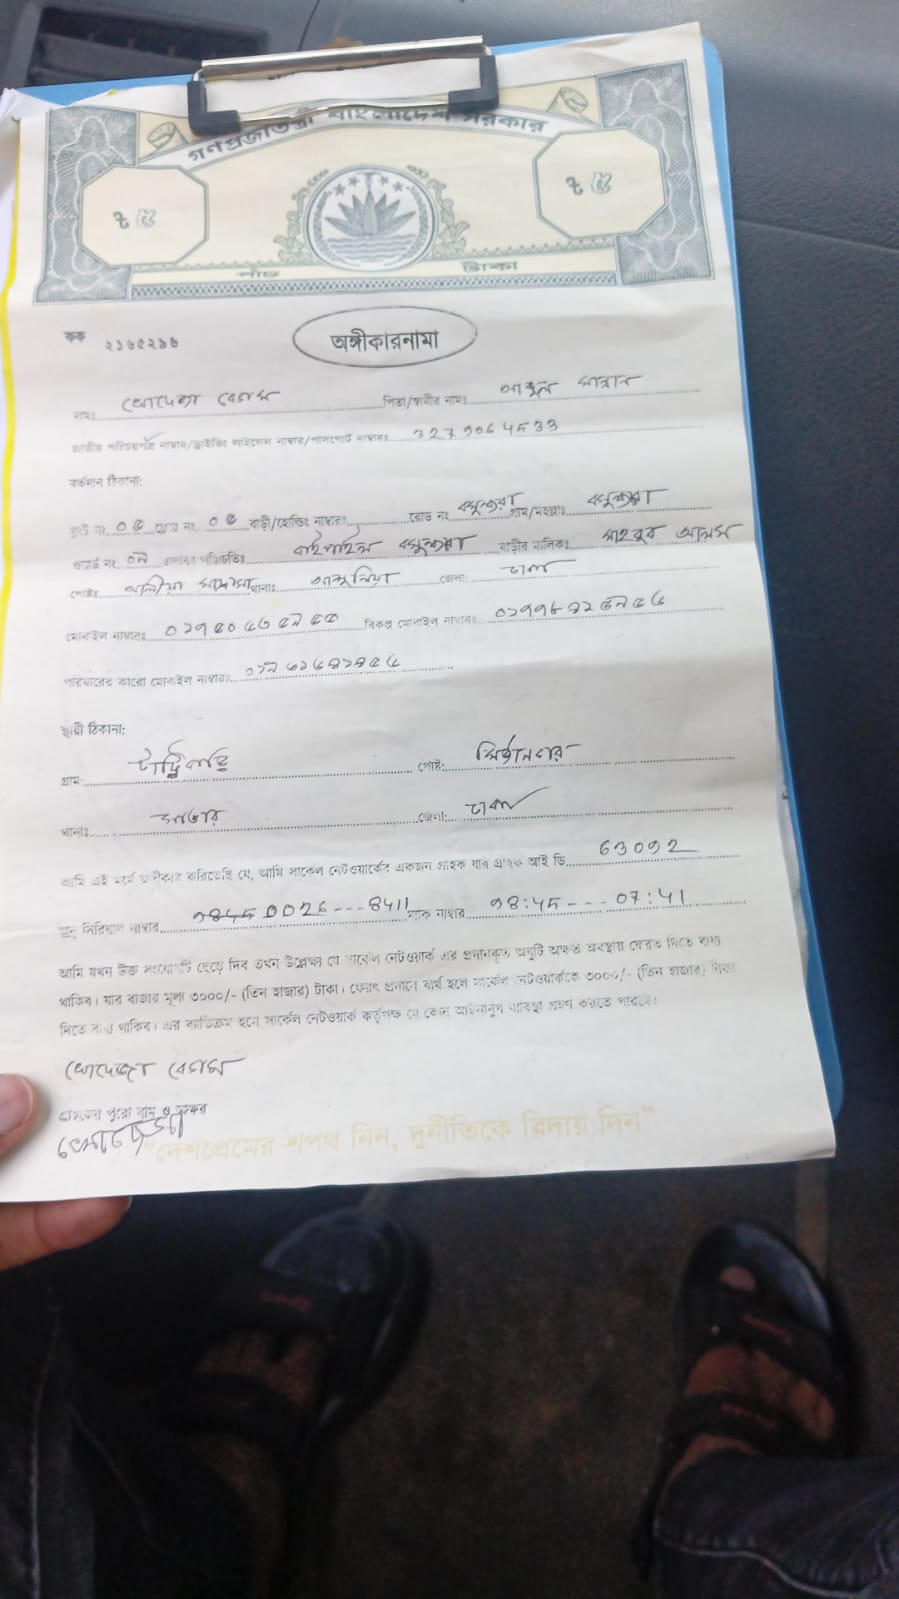 গণপ্রজাতন্ত্রী বাংলাদেশ সরকার
৳ ৫ ৳ ৫
পাঁচ টাকা
কক ২১৬৫২৯৬
অঙ্গীকারনামা
নামঃ খোদেজা বেগম পিতা/স্বামীর নামঃ আব্দুল মান্নান
জাতীয় পরিচয়পত্র নাম্বার/ড্রাইভিং লাইসেন্স নাম্বার/পাসপোর্ট নাম্বারঃ 3279064533
বর্তমান ঠিকানা:
ফ্ল্যাট নং ০৫ ফ্লোর নং ০৫ বাড়ী/হোল্ডিং নাম্বারঃ রোড নং বসুন্ধরা গ্রাম/মহল্লাঃ বসুন্ধরা
ওয়ার্ড নং ০৯ এলাকা পরিচিতিঃ বাইপাইল বসুন্ধরা বাড়ীর মালিকঃ মাহবুব আলম
পোষ্টঃ আলীয়া মাদ্রাসা থানাঃ আশুলিয়া জেলা: ঢাকা
মোবাইল নাম্বারঃ বিকল্প মোবাইল নাম্বারঃ
পরিবারের কারো মোবাইল নাম্বারঃ
স্থায়ী ঠিকানা:
গ্রাম: পোষ্ট: মির্জানগর
থানাঃ সাভার জেলা: ঢাকা
আমি এই মর্মে অঙ্গীকার করিতেছি যে, আমি সার্কেল নেটওয়ার্কের একজন গ্রাহক যার গ্রাহক আই ডি 63092
অনু সিরিয়াল নাম্বার 98450026---8411 ম্যাক নাম্বার 98:45---07:41
আমি যখন উক্ত সংযোগটি ছেড়ে দিব তখন উল্লেক্ষ্য যে সার্কেল নেটওয়ার্ক এর প্রদানকৃত অনুটি অক্ষত অবস্থায় ফেরত দিতে বাধ্য
থাকিব। যার বাজার মূল্য ৩০০০/- (তিন হাজার) টাকা। ফেরৎ প্রদানে ব্যর্থ হলে সার্কেল নেটওয়ার্ককে ৩০০০/- (তিন হাজার) টাকা
দিতে বাধ্য থাকিব। এর ব্যতিক্রম হলে সার্কেল নেটওয়ার্ক কর্তৃপক্ষ যে কোন আইনানুগ ব্যবস্থা গ্রহণ করতে পারবে।
খোদেজা বেগম
গ্রাহকের পুরো নাম ও স্বাক্ষর
খোদেজা
"দেশপ্রেমের শপথ নিন, দুর্নীতিকে বিদায় দিন"